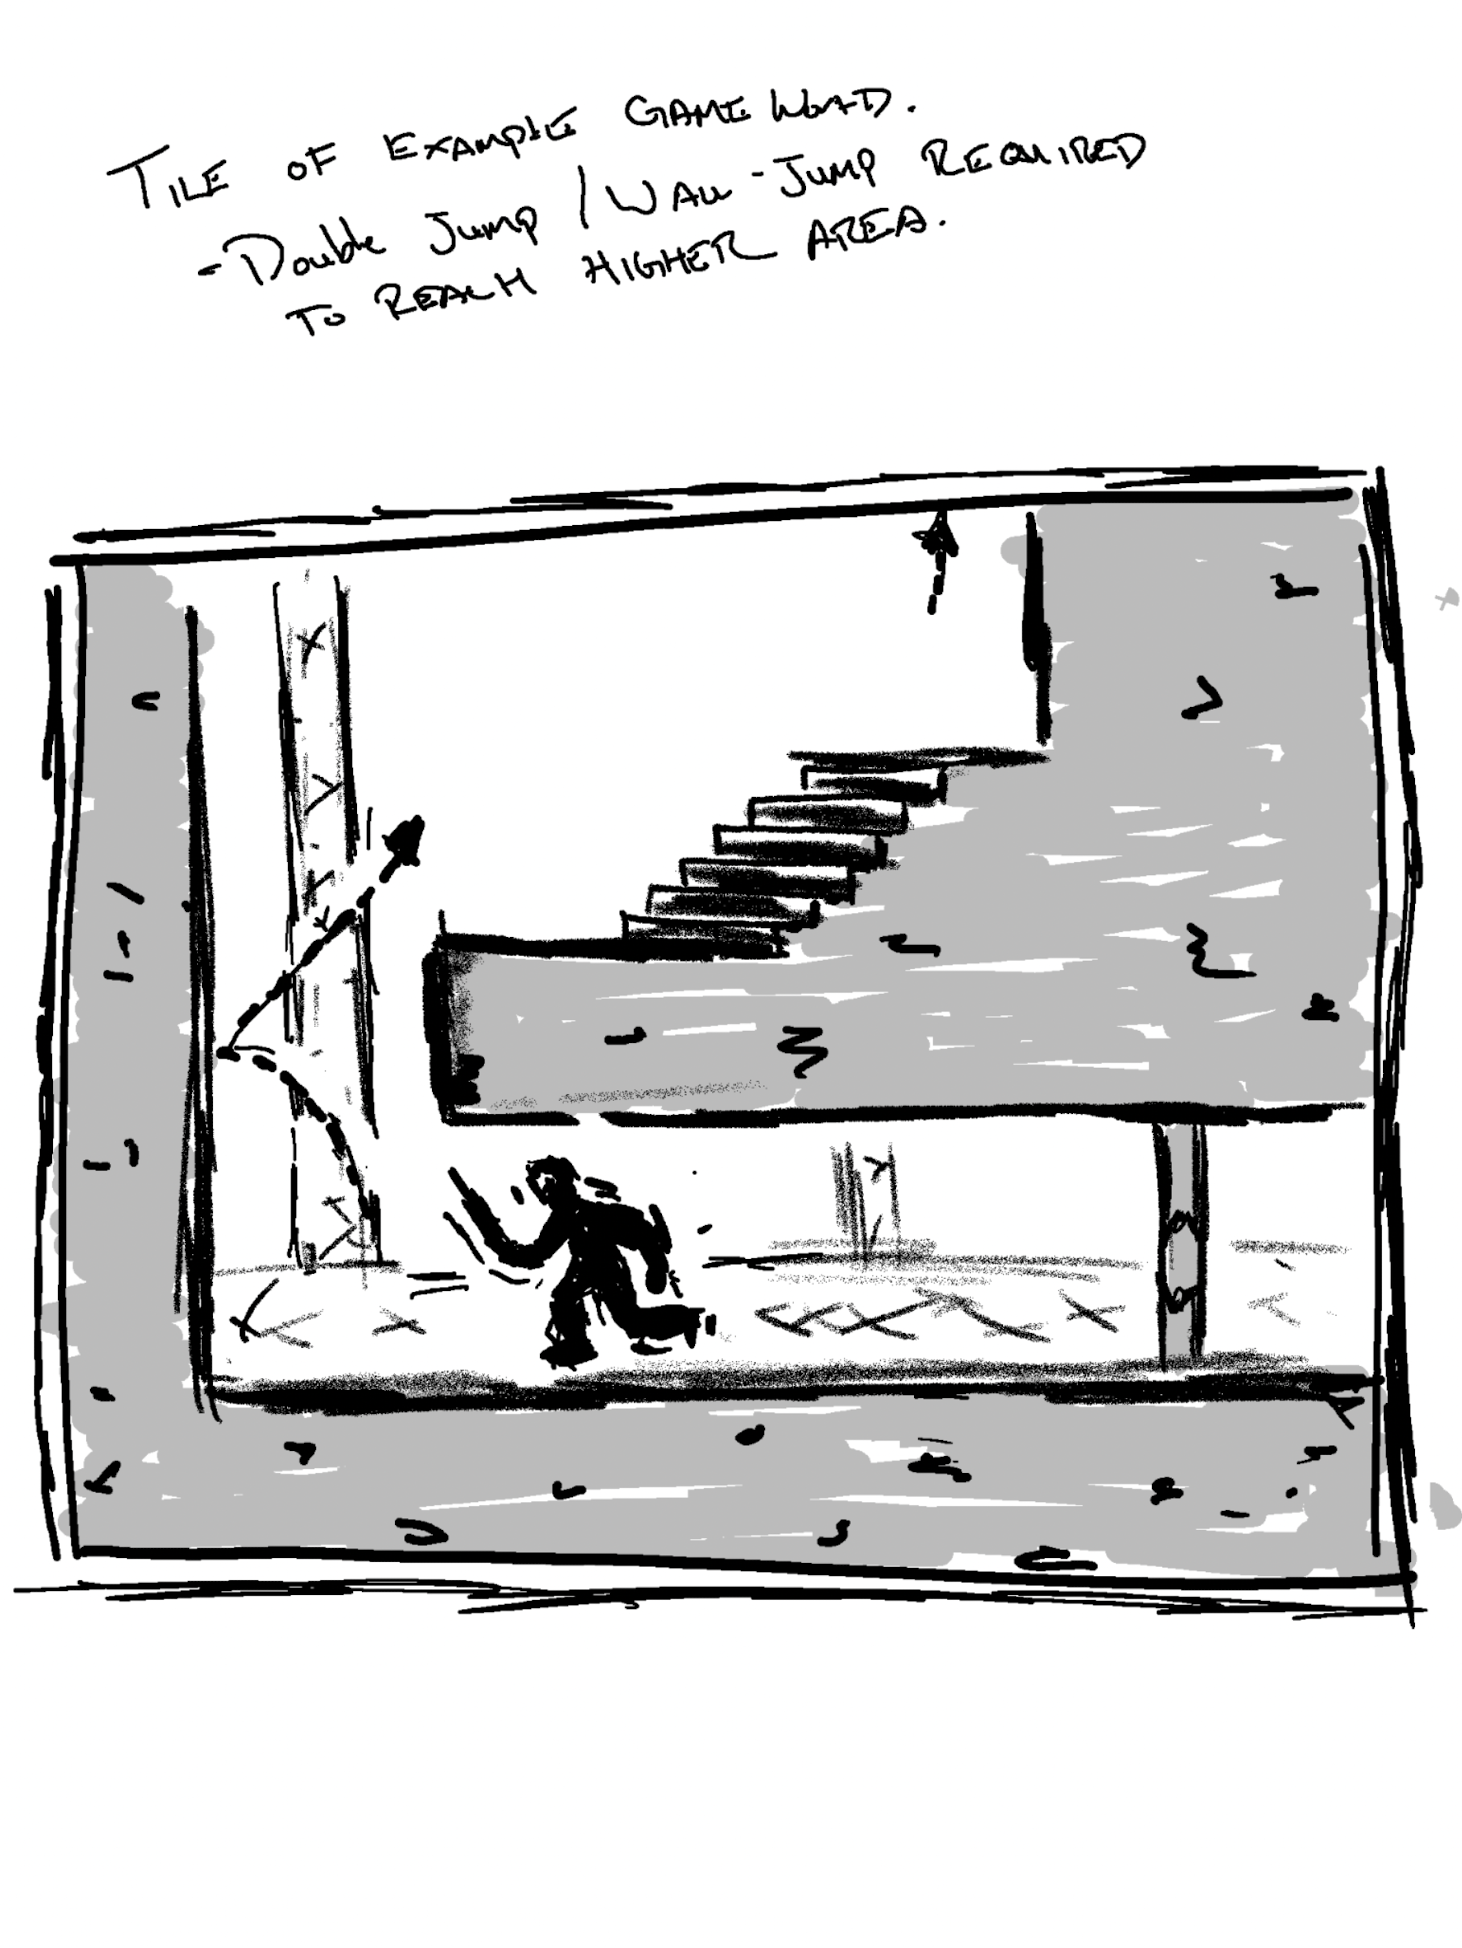 TILE OF EXAMPLE GAME WORLD.
- DOUBLE JUMP / WALL-JUMP REQUIRED
TO REACH HIGHER AREA.